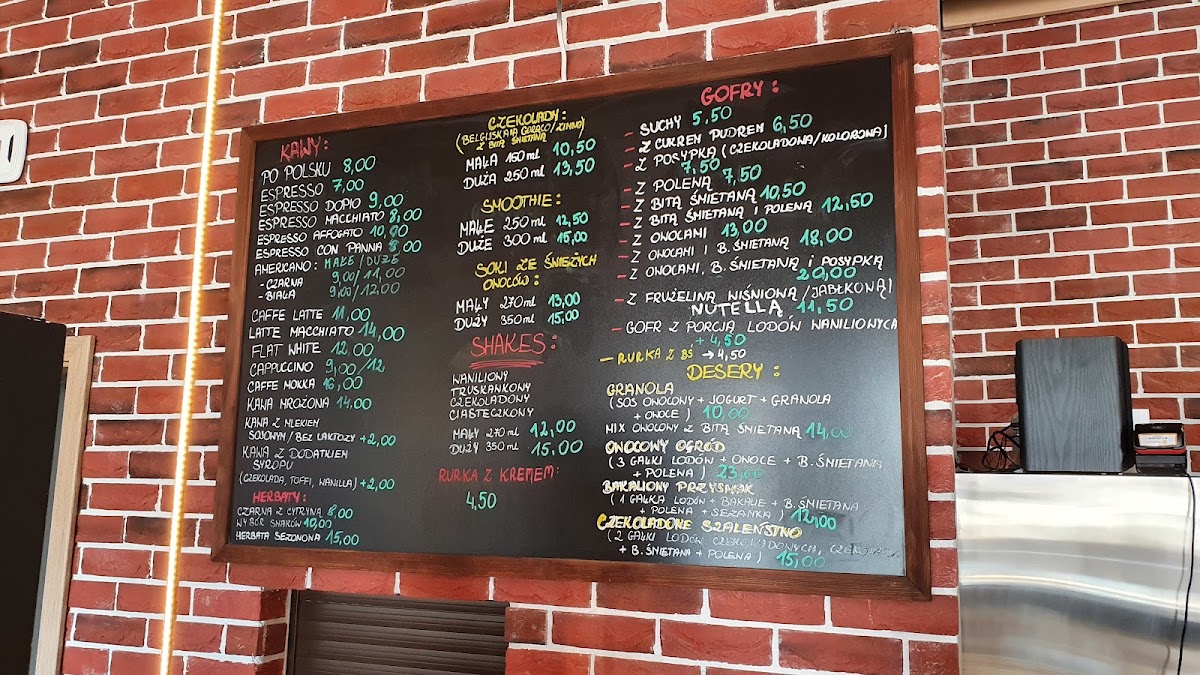 KAWY:
PO POLSKU 8,00
ESPRESSO 7,00
ESPRESSO DOPIO 9,00
ESPRESSO MACCHIATO 8,00
ESPRESSO AFFOGATO
ESPRESSO CON PANNA
AMERICANO: MAŁE/DUŻE
-CZARNA 9,00/11,00
-BIAŁA 9,00/12,00
CAFFE LATTE 11,00
LATTE MACCHIATO 14,00
FLAT WHITE 12,00
CAPPUCCINO 9,00/12
CAFFE MOKKA 16,00
KAWA MROŻONA 14,00
KAWA Z MLEKIEM
SOJOWYM/BEZ LAKTOZY +2,00
KAWA Z DODATKIEM
SYROPU
(CZEKOLADA, TOFFI, WANILLA) +2,00
HERBATY:
CZARNA Z CYTRYNĄ 8,00
WYBÓR SMAKÓW 10,00
HERBATA SEZONOWA 15,00
CZEKOLADY:
(BELGIJSKA NA GORĄCO/ZIMNO)
Z BITĄ ŚMIETANĄ
MAŁA 150 ml 10,50
DUŻA 250 ml 13,50
SMOOTHIE:
MAŁE 250 ml 12,50
DUŻE 300 ml 15,00
SOKI ZE ŚWIEŻYCH
OWOCÓW:
MAŁY 270 ml 13,00
DUŻY 350 ml 15,00
SHAKES:
WANILIOWY
TRUSKAWKOWY
CZEKOLADOWY
CIASTECZKOWY
MAŁY 270 ml 12,00
DUŻY 350 ml 15,00
RURKA Z KREMEM:
4,50
GOFRY:
- SUCHY 5,50
- Z CUKREM PUDREM 6,50
- Z POSYPKĄ (CZEKOLADOWA/KOLOROWA)
7,50
- Z POLEWĄ 7,50
- Z BITĄ ŚMIETANĄ 10,50
- Z BITĄ ŚMIETANĄ I POLEWĄ 12,50
- Z OWOCAMI 13,00
- Z OWOCAMI I B.ŚMIETANĄ 18,00
- Z OWOCAMI, B.ŚMIETANĄ I POSYPKĄ
20,00
- Z FRUŻELINĄ WIŚNIOWĄ/JABŁKOWĄ/
NUTELLĄ 11,50
- GOFR Z PORCJĄ LODÓW WANILIOWYCH
+ 4,50
- RURKA Z BŚ → 4,50
DESERY:
GRANOLA
(SOS OWOCOWY + JOGURT + GRANOLA
+ OWOCE) 10,00
MIX OWOCOWY Z BITĄ ŚMIETANĄ 14,00
OWOCOWY OGRÓD
(3 GAŁKI LODÓW + OWOCE + B.ŚMIETANA
+ POLEWA) 23,00
BAKALIOWY PRZYSMAK
(1 GAŁKA LODÓW + BAKALIE + B.ŚMIETANA
+ POLEWA + SEZAMKA) 12,00
CZEKOLADOWE SZALEŃSTWO
(2 GAŁKI LODÓW CZEKOLADOWYCH,
+ B.ŚMIETANA + POLEWA) 15,00